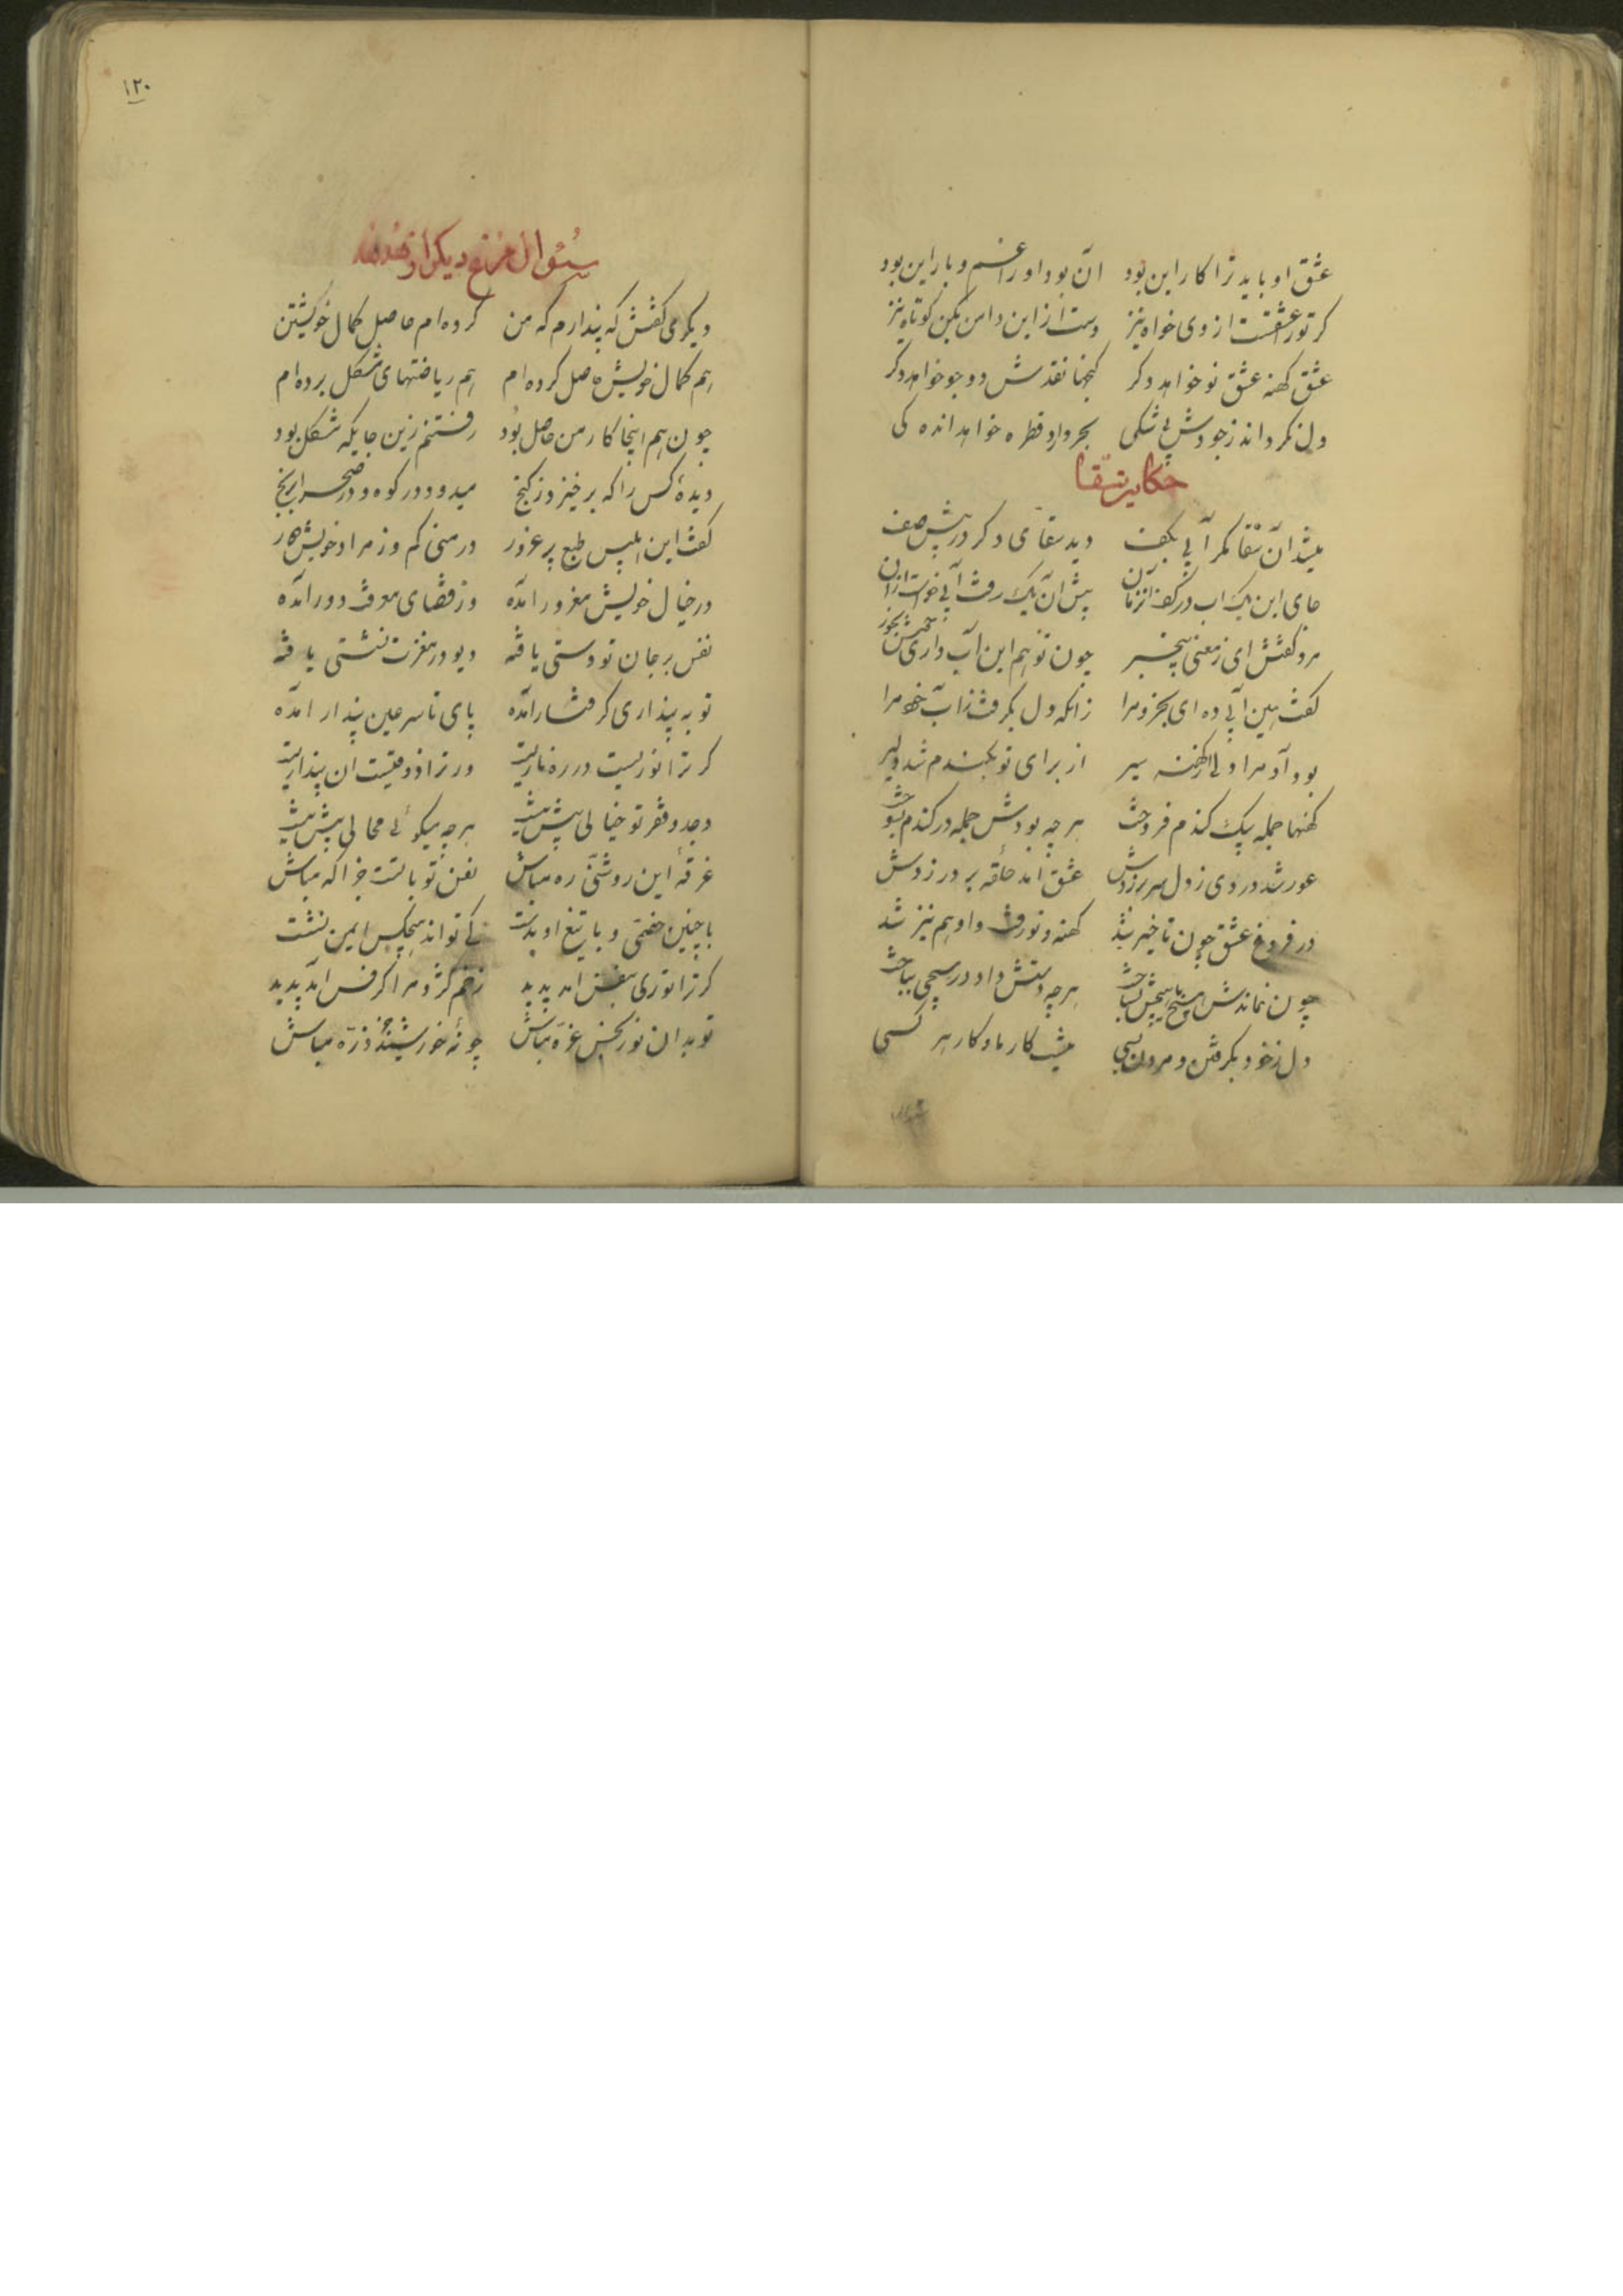 عشق او باید ترا کار این بود    آن بود او را غم و بار این بود
کر تو را عشقست از وی خواه نیز    دست ازین دامن مکن کوتاه نیز
عشق کهنه عشق نو خواهد دکر    کنجها نقدش دو جو خواهد دکر
دل نکرداند ز جودش بی شکی    بحر دارد قطره خواهد اندکی
حکایت سقا
میشد آن سقا مکر آبی بکف    دید سقائی دکر در پیش صف
حالی این یک آب در کف آن زمان    پیش آن یک رفت آبی خواست از آن
مرد کفتش ای ز معنی بیخبر    چون تو هم این آب داری خوش بخور
کفت هین آبی ده ای بخرد مرا    زانکه دل بکرفت از آب خود مرا
بود آدم را دلی از کهنه سیر    از برای نو بکندم شد دلیر
کهنها جمله بیک کندم فروخت    هر چه بودش جمله در کندم بسوخت
عور شد دردی ز دل سر بر زدش    عشق آمد حلقه بر در زدش
در فروغ عشق چون ناچیز شد    کهنه و نو رفت و او هم نیز شد
چون نماندش هیچ با هیچش بساخت    هر چه دستش داد در هیچی بباخت
دل ز خود بکرفتن و مردن بسی    نیست کار ما و کار هر کسی
۱۲۰
سئوال مرغ دیکر از هدهد
دیکری کفتش که پندارم که من    کرده ام حاصل کمال خویشتن
هم کمال خویش حاصل کرده ام    هم ریاضتهای مشکل برده ام
چون هم اینجا کار من حاصل بود    رفتنم زین جایکه مشکل بود
دیدۀ کس را که برخیزد ز کنج    میدود در کوه و در صحرا برنج
کفت این ابلیس طبع پر غرور    در منی کم وز مراد خویش دور
در خیال خویش مغرور آمده    وز فضای معرفت دور آمده
نفس بر جان تو دستی یافته    دیو در مغزت نشستی یافته
تو به پنداری کرفتار آمده    پای تا سر عین پندار آمده
کر ترا نوریست در ره ناریست    ور ترا ذوقیست آن پنداریست
وجد و فقر تو خیالی بیش نیست    هر چه میکوئی محالی بیش نیست
غرقۀ این روشنی ره مباش    نفس تو با تست جز آکه مباش
با چنین خصمی و با تیغ او بدست    کی تواند هیچکس ایمن نشست
کر ترا نوری ز نفس آمد پدید    زخم کژدم را کرفس آمد پدید
تو بدان نور نجس غره مباش    چو نۀ خورشید جز ذره مباش